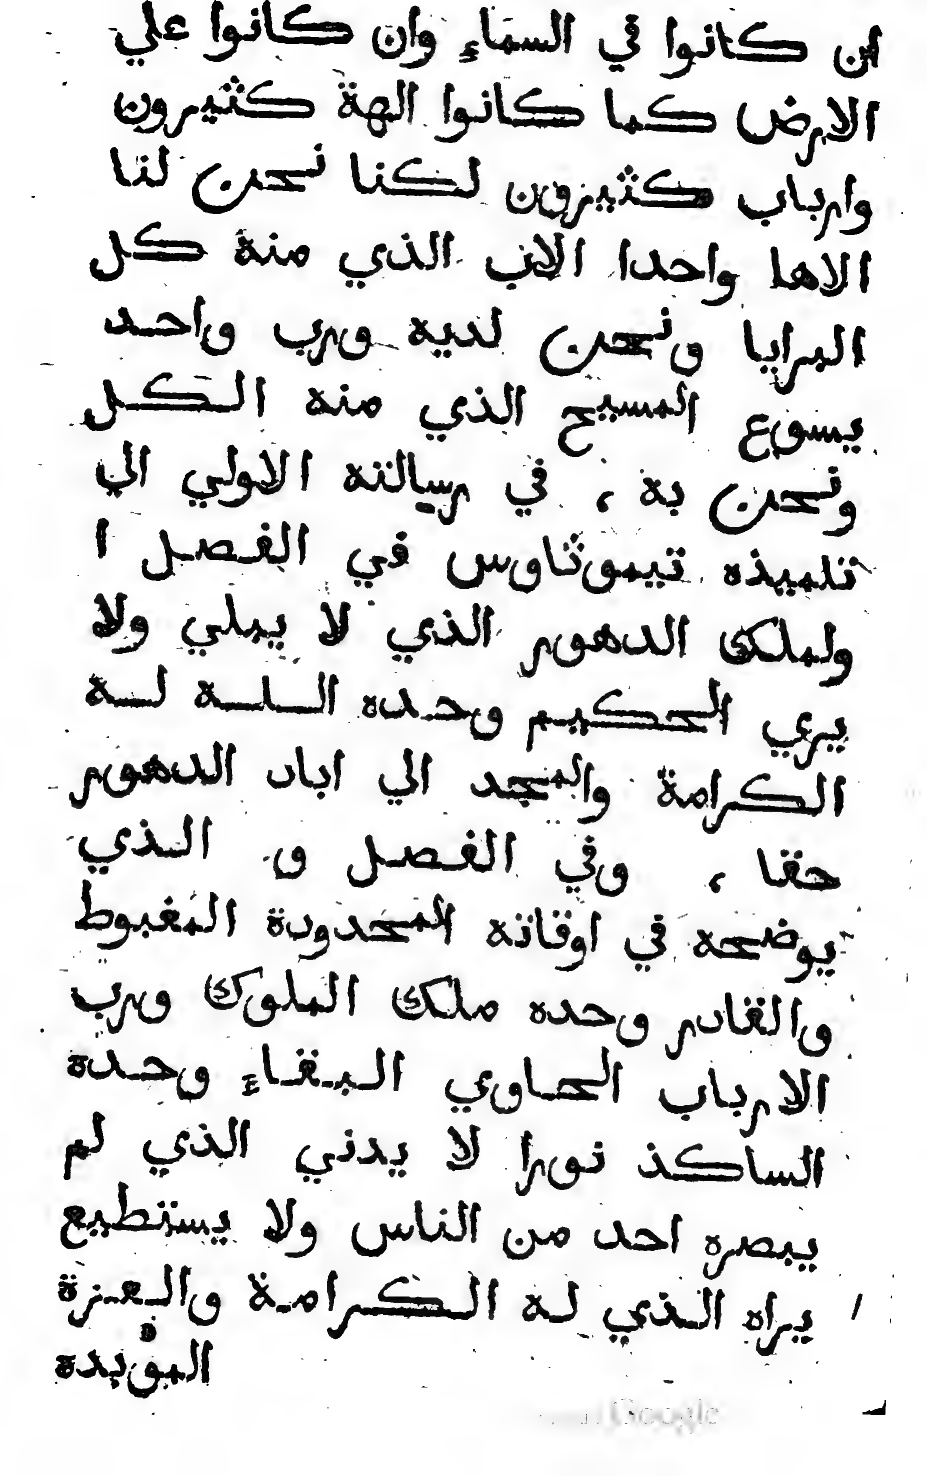 ان كانوا في السماء وان كانوا علي
الارض كما كانوا الهة كثيرون
وارباب كثيرون لكنا نحن لنا
الاها واحدا الاب الذي منه كل
البرايا ونحن لديه ورب واحد
يسوع المسيح الذي منه الكل
ونحن به ، في رسالته الاولي الي
تلميذه تيموثاوس في الفصل ا
ولملك الدهور الذي لا يبلي ولا
يري الحكيم وحده الله له
الكرامة والمجد الي اباد الدهور
حقا ، وفي الفصل و الذي
يوضحه في اوقاته المحدودة المغبوط
والقادر وحده ملك الملوك ورب
الارباب الحاوي البقاء وحده
الساكذ نورا لا يدني الذي لم
يبصره احد من الناس ولا يستطيع
يراه الذي له الكرامة والعزة
المؤبدة
Google